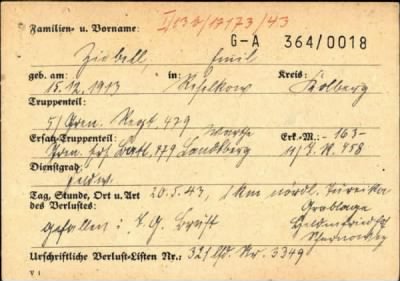 I/137/17173/43
Familien- u. Vorname:
G-A 364/0018
Ziebell, Emil
geb. am: in: Kreis:
15.12.1913 Reselkow Kolberg
Truppenteil:
5/Gren. Regt. 479
Ersatz-Truppenteil: Warthe Erk.-M.: -163-
Gren. Ers. Batl. 479 Landsberg 11/I.R. 458
Dienstgrad:
Feldw.
Tag, Stunde, Ort u. Art 20.5.43, 1 km nördl.
des Verlustes: Grablage
gefallen: I.G. Brust Heldenfriedhof
Urschriftliche Verlust-Listen Nr.: 321 lfd. Nr. 3349
V 1